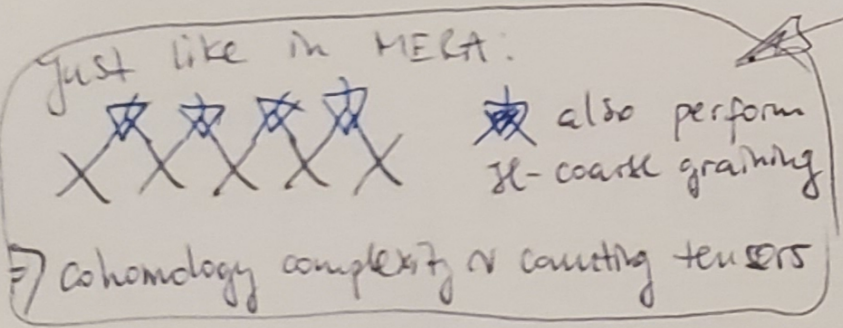 Just like in MERA:
also perform
H-coarse graining
⇒ cohomology complexity ~ counting tensors